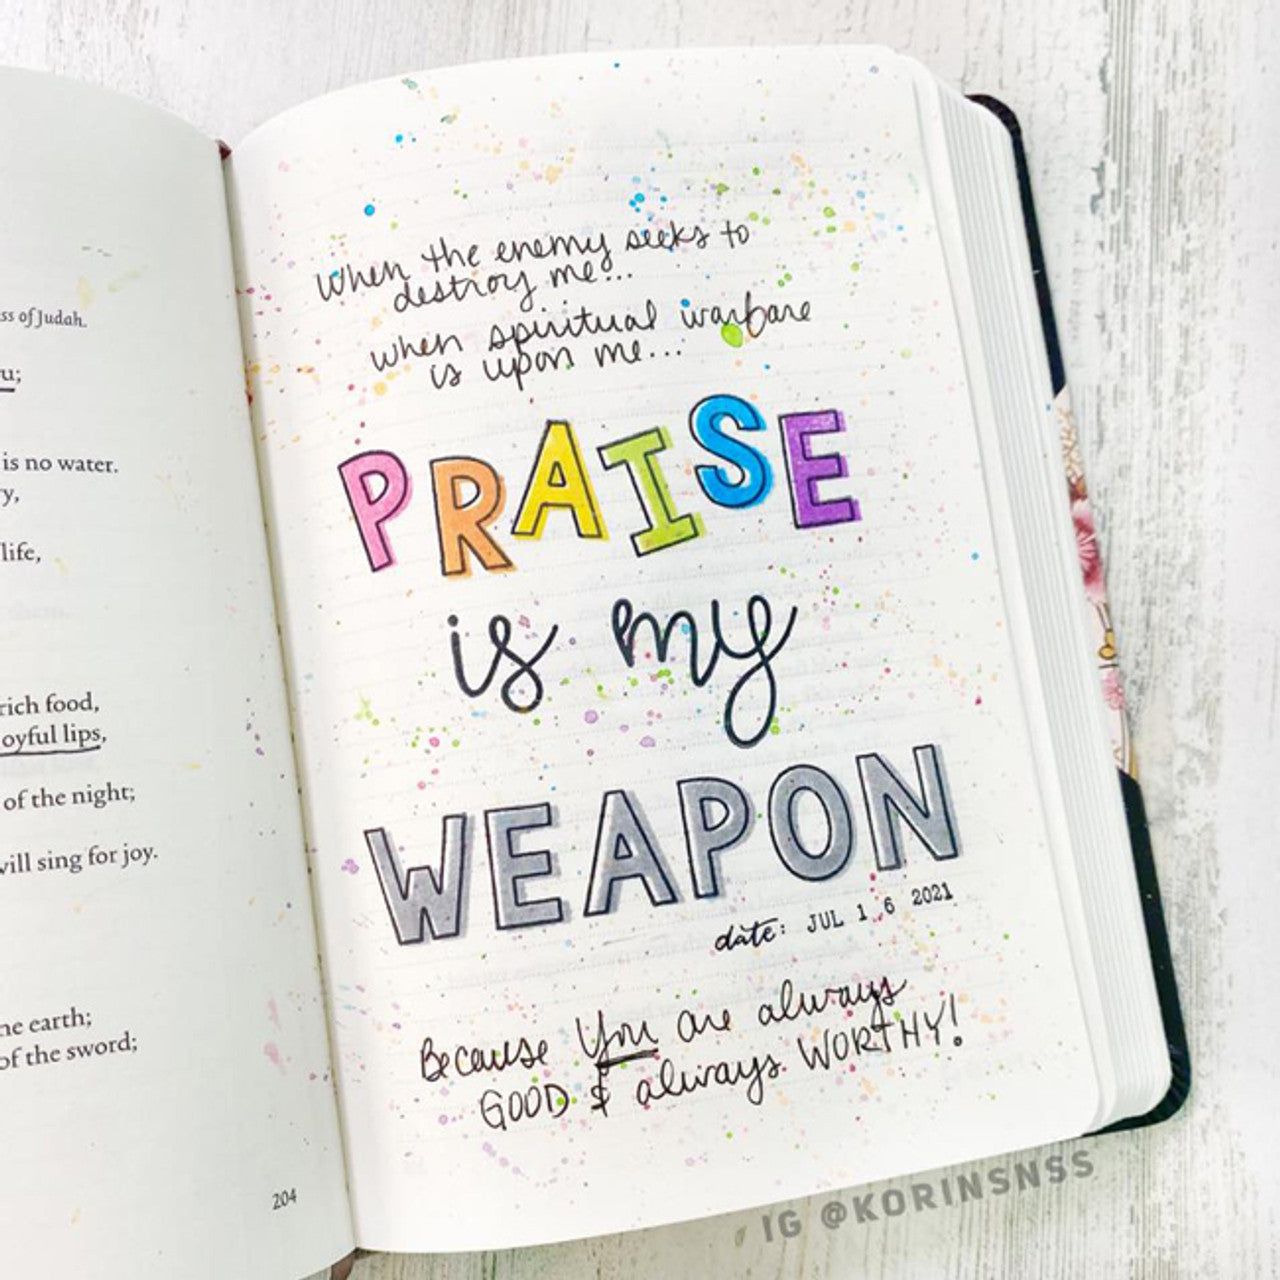 ss of Judah.
u;
is no water.
ry,
life,
rich food,
oyful lips,
of the night;
will sing for joy.
he earth;
of the sword;
204
When the enemy seeks to
destroy me...
when spiritual warfare
is upon me...
PRAISE
is my
WEAPON
date: JUL 16 2021
Because You are always
GOOD & always WORTHY!
IG @KORINSNSS